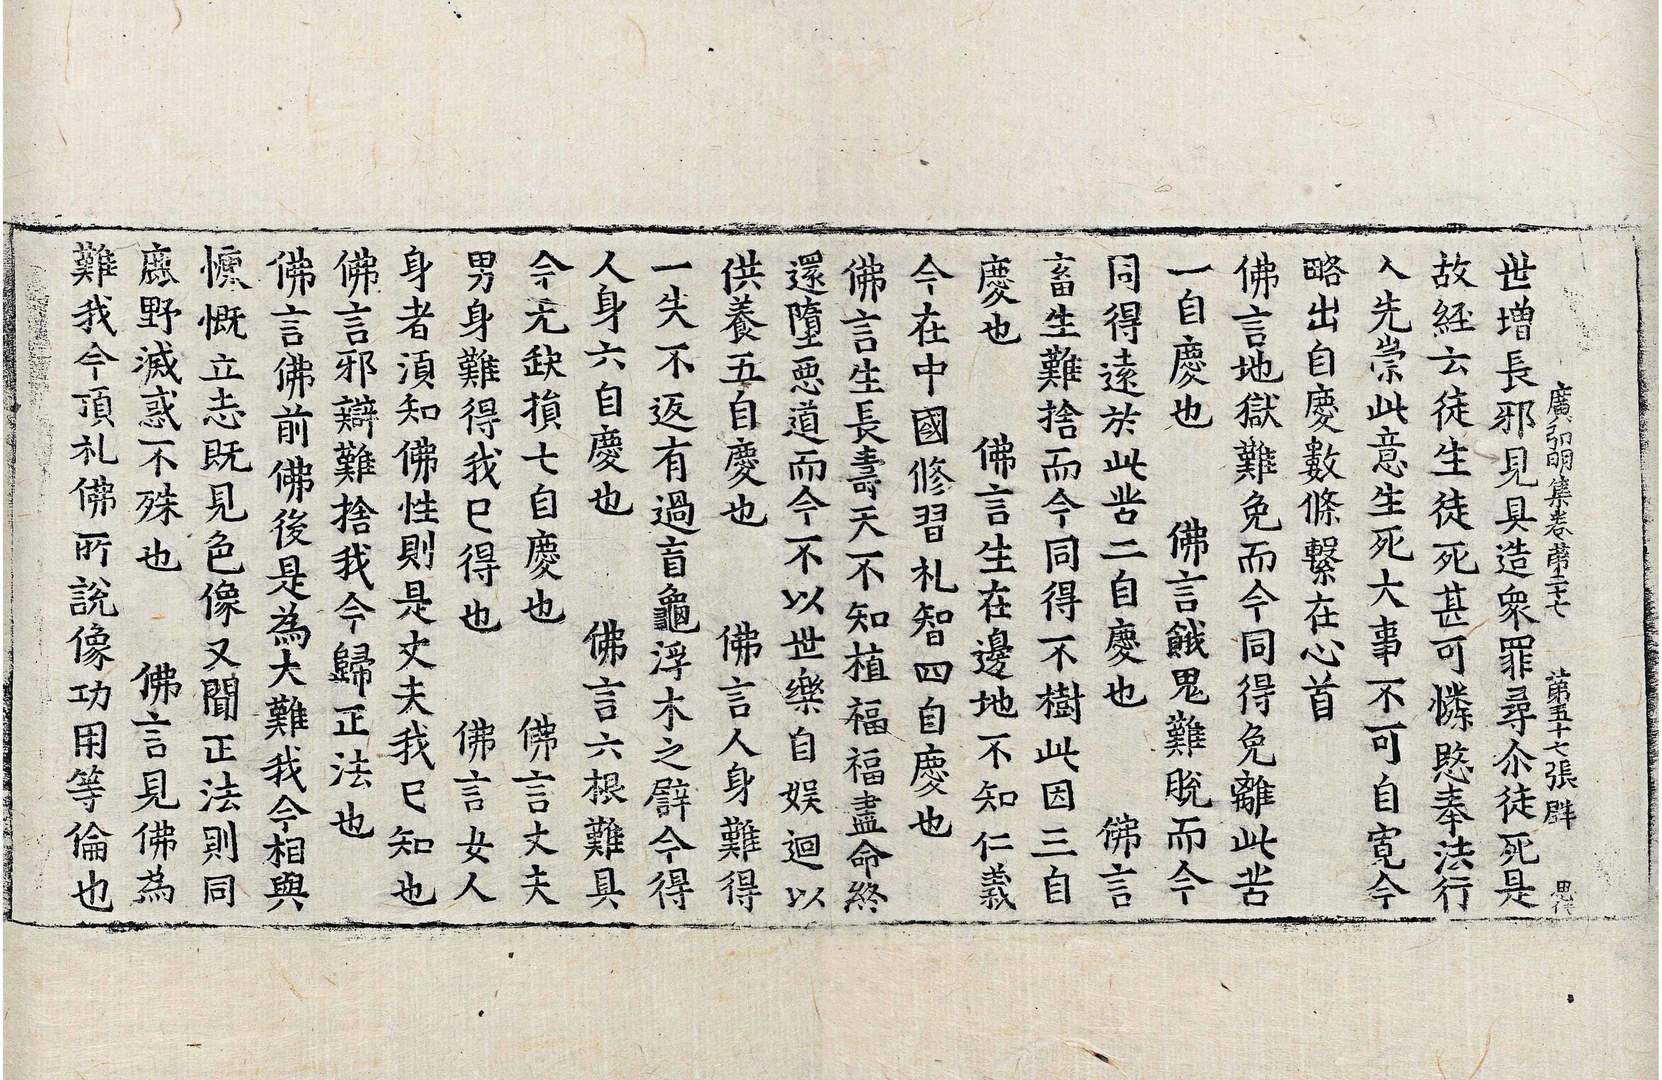 廣弘明集卷第二十七 第五十七張 群
世增長邪見具造衆罪尋尒徒死是
故経云徒生徒死甚可憐愍奉法行
人先崇此意生死大事不可自寬今
略出自慶數條繫在心首
佛言地獄難免而今同得免離此苦
一自慶也 佛言餓鬼難脫而今
同得遠於此苦二自慶也 佛言
畜生難捨而今同得不樹此因三自
慶也 佛言生在邊地不知仁義
今在中國修習礼智四自慶也
佛言生長壽天不知植福福盡命終
還墮惡道而今不以世樂自娱迴以
供養五自慶也 佛言人身難得
一失不返有過盲龜浮木之譬今得
人身六自慶也 佛言六根難具
今无缺損七自慶也 佛言丈夫
男身難得我已得也 佛言女人
身者湏知佛性則是丈夫我已知也
佛言邪辯難捨我今歸正法也
佛言佛前佛後是為大難我今相與
慷慨立志既見色像又聞正法則同
鹿野滅惑不殊也 佛言見佛為
難我今頂礼佛所說像功用等倫也